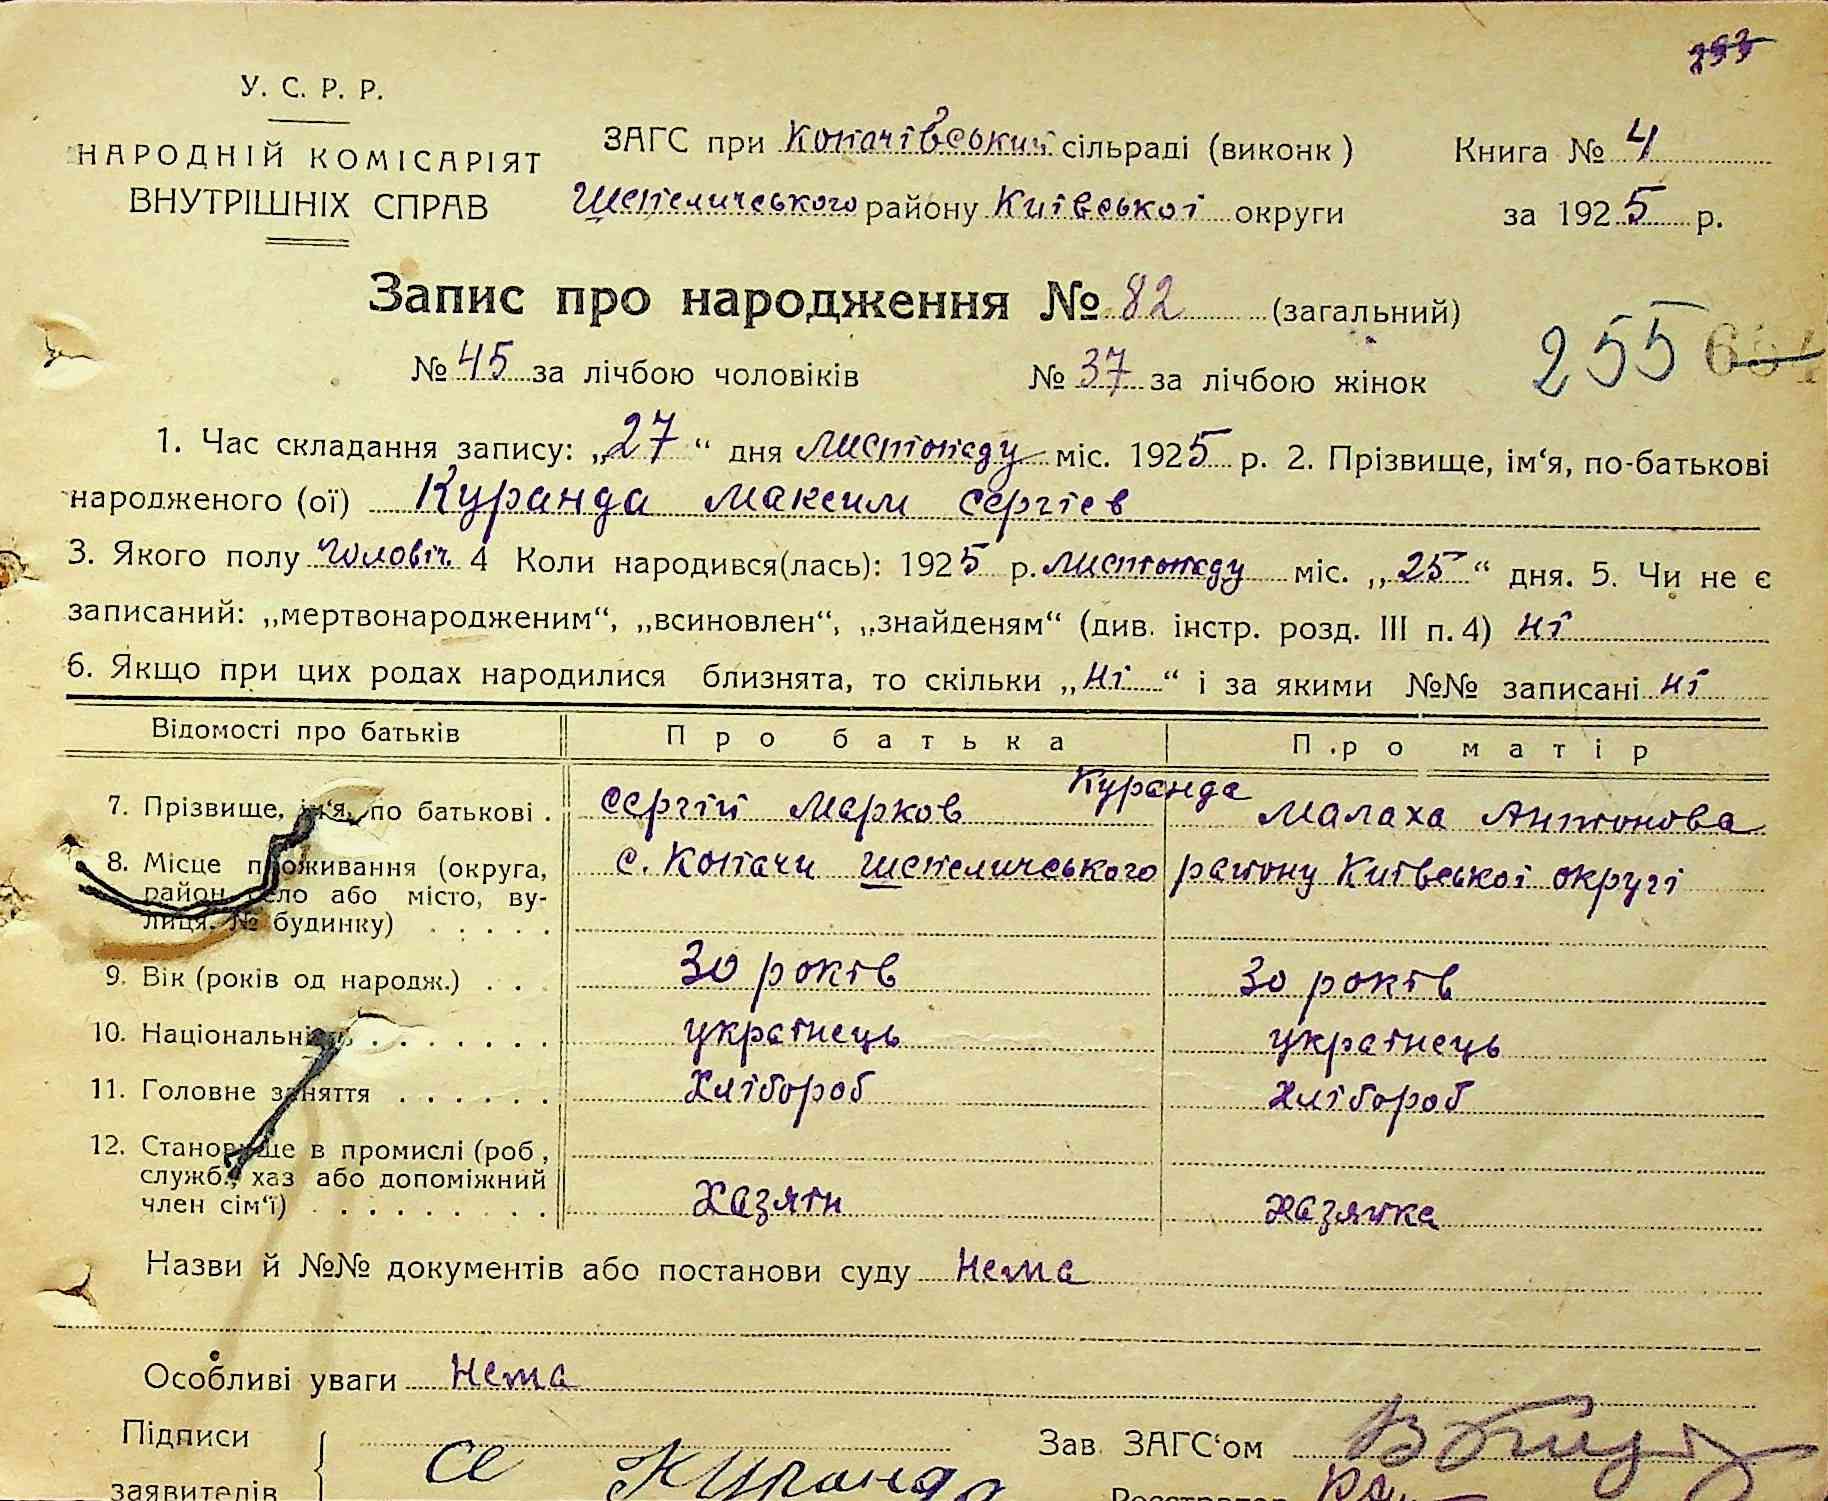 У. С. Р. Р.
НАРОДНІЙ КОМІСАРІЯТ
ВНУТРІШНІХ СПРАВ
ЗАГС при Копачівський сільраді (виконк)
Шепеличського району Київської округи
Книга № 4
за 1925 р.
Запис про народження № 82 (загальний)
№ 45 за лічбою чоловіків № 37 за лічбою жінок
255
1. Час складання запису: „27“ дня листопаду міс. 1925 р. 2. Прізвище, ім‘я, по-батькові
народженого (ої) Куранда Максим Сергіев
3. Якого полу чоловіч. 4 Коли народився(лась): 1925 р. листопаду міс. „25“ дня. 5. Чи не є
записаний: „мертвонародженим“, „всиновлен“, „знайденям“ (див. інстр. розд. III п. 4) ні
6. Якщо при цих родах народилися близнята, то скільки „ні“ і за якими №№ записані ні
Відомості про батьків Про батька Про матір
7. Прізвище, ім‘я, по батькові . Сергій Марков Куранда Малаха Антонова
8. Місце проживання (округа, с. Копачи Шепеличського району Київської округі
район, село або місто, ву-
лиця, № будинку) . . . . .
9. Вік (років од народж.) . . . 30 років 30 років
10. Національність . . . . . . . українець українець
11. Головне заняття . . . . . . хлібороб хлібороб
12. Становище в промислі (роб,
служб., хаз або допоміжний
член сім‘ї) . . . . . . . . . Хазяїн хазяйка
Назви й №№ документів або постанови суду Нема
Особливі уваги Нема
Підписи
заявителів
Се Куранда
Зав. ЗАГС‘ом
Реєстратор